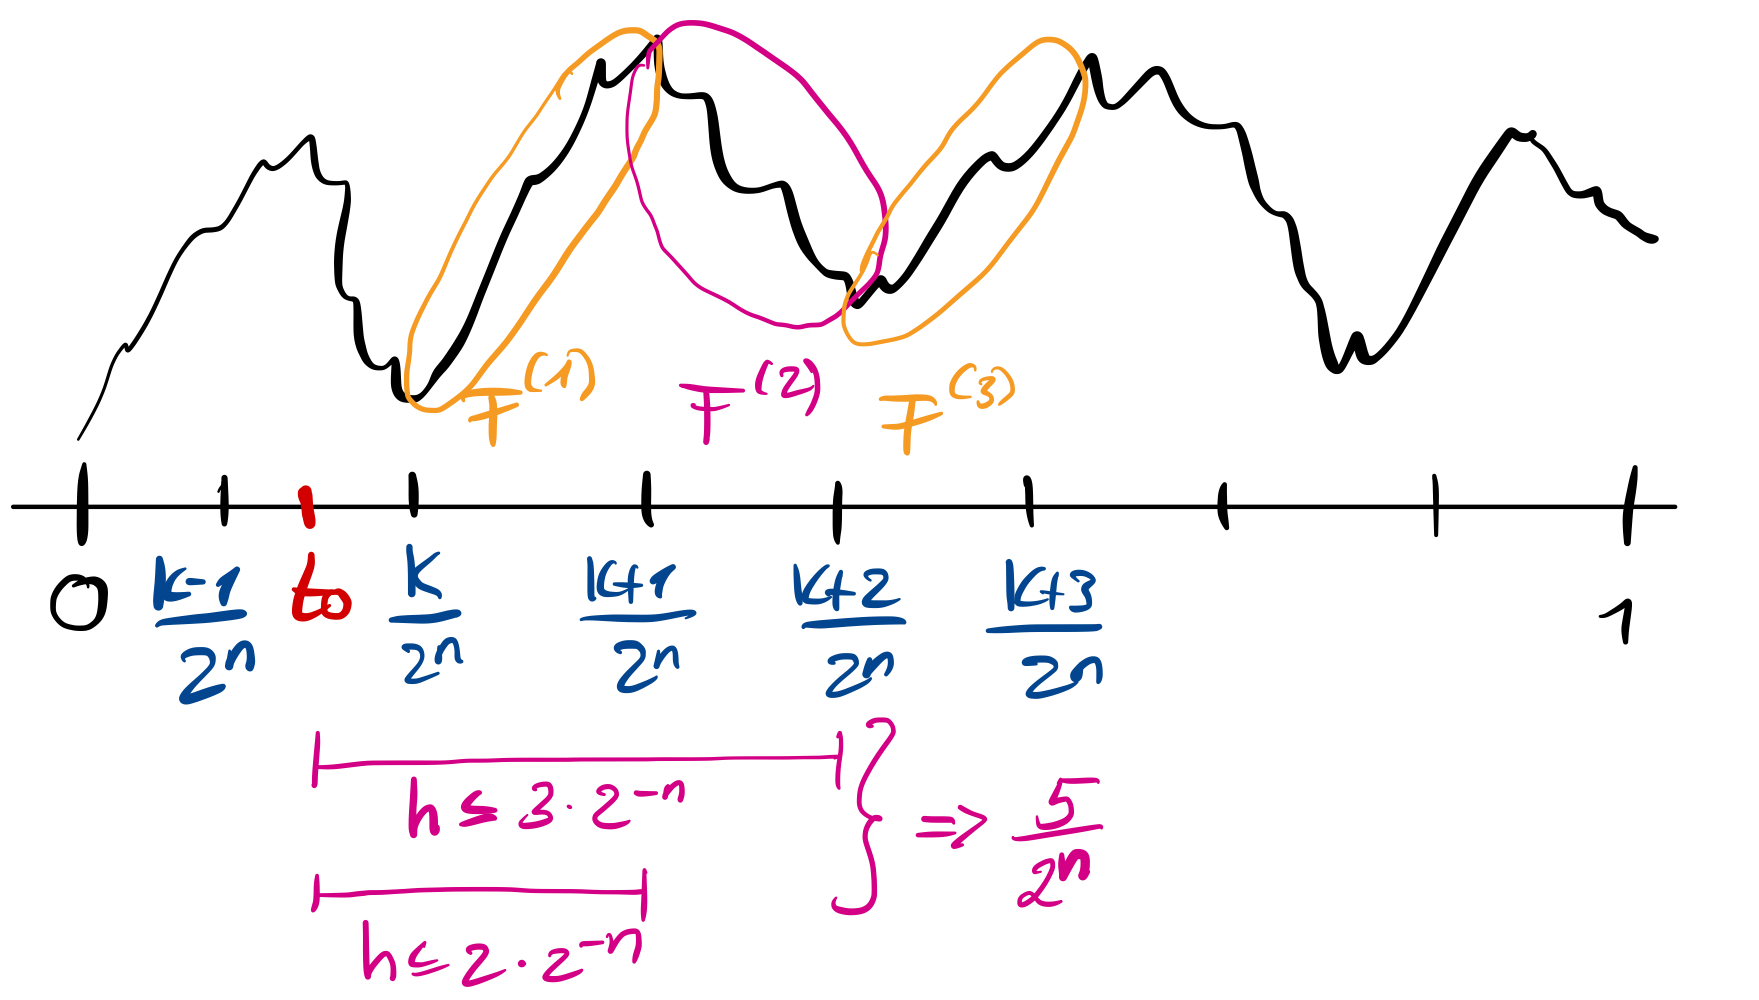 F^(1) F^(2) F^(3)
0 k-1/2^n t₀ k/2^n k+1/2^n k+2/2^n k+3/2^n 1
h ≤ 3·2^-n
=> 5/2^n
h ≤ 2·2^-n